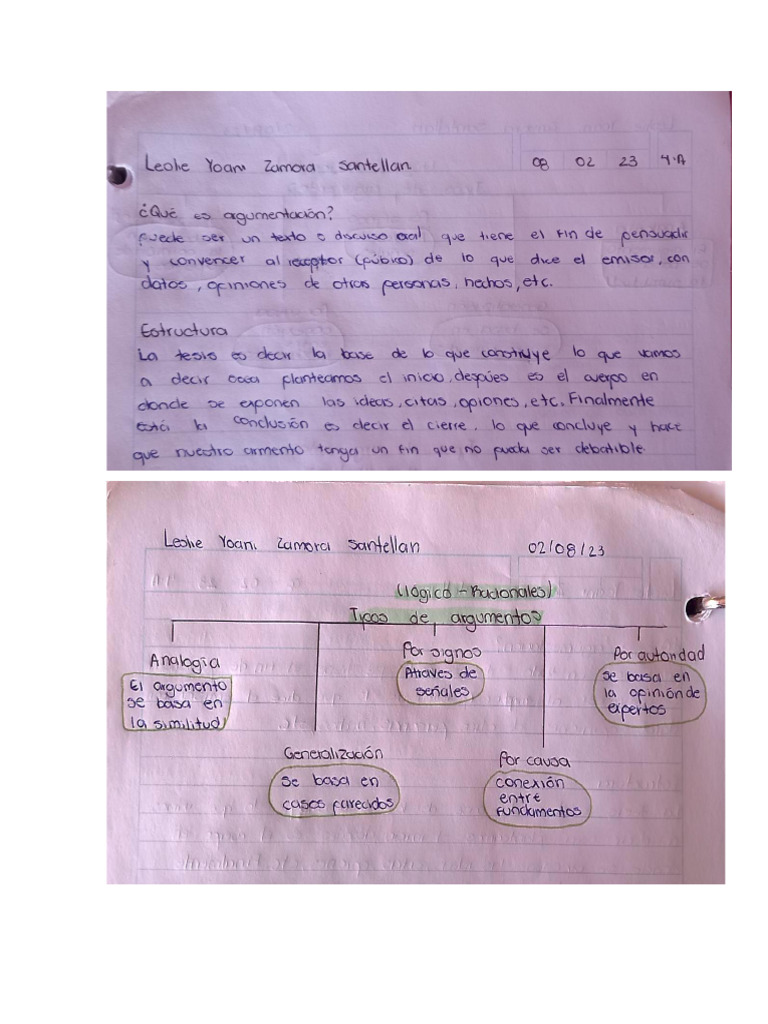 Leslie Yoani Zamora Santellan 08 02 23 4·A
¿Qué es argumentación?
Puede ser un texto o discurso oral que tiene el fin de pensuadir
y convencer al receptor (público) de lo que dice el emisor, con
datos, opiniones de otras personas, hechos, etc.
Estructura
La tesis es decir la base de lo que construye lo que vamos
a decir planteamos el inicio, despúes es el cuerpo en
donde se exponen las ideas, citas, opiones, etc. Finalmente
está la conclusión es decir el cierre, lo que concluye y hace
que nuestro armento tenga un fin que no pueda ser debatible
Leslie Yoani Zamora Santellan 02/08/23
(lógico - Racionales)
Tipos de argumentos
Analogía
El argumento
se basa en
la similitud
Generalización
Se basa en
casos parecidos
Por signos
Atraves de
señales
Por causa
conexión
entre
fundamentos
Por autoridad
se basa en
la opinión de
expertos